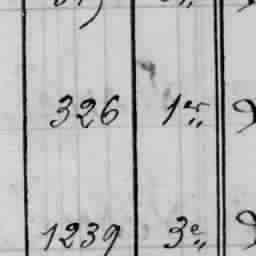 326 1er
1239 3e